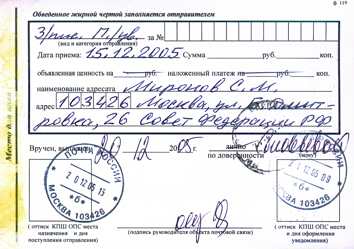 ф 119
Обведенное жирной чертой заполняется отправителем
З/пис. П./ув. за №
(вид и категория отправления)
Дата приема: 15.12.2005 Сумма руб. коп.
объявленная ценность на руб. наложенный платеж на руб.
наименование адресата Миронов С.М.
адрес 103426 Москва, ул. Б. Дмит-
ровка, 26 Совет Федерации РФ
Вручен, 20 12 2005г. лично
по доверенности
ПОЧТА РОССИИ
20 12 05 15
*6*
МОСКВА 103426
12 05 09
*6*
(подпись руководителя объекта почтовой связи)
( оттиск КПШ ОПС места назначения и дня поступления отправления)
( оттиск КПШ ОПС места и дня оформления уведомления)
Место для